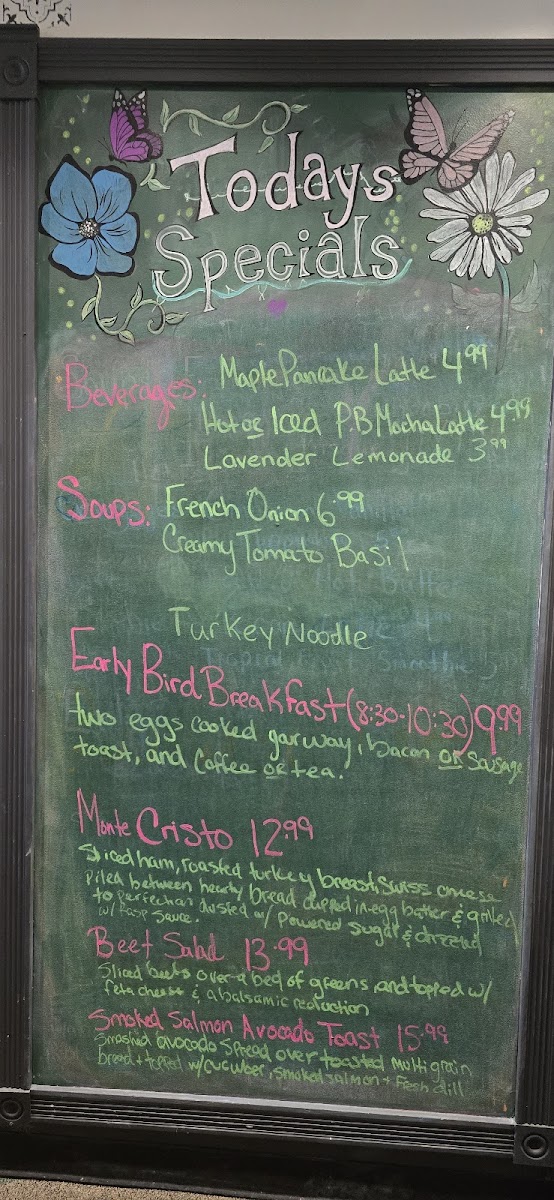 Todays
Specials
Beverages: Maple Pancake Latte 4.99
Hot or Iced P.B Mocha Latte 4.99
Lavender Lemonade 3.99
Soups: French Onion 6.99
Creamy Tomato Basil
Turkey Noodle
Early Bird Breakfast (8:30-10:30) 9.99
two eggs cooked yar way, bacon or sausage
toast, and coffee or tea.
Monte Cristo 12.99
Sliced ham, roasted turkey breast, Swiss cheese
piled between hearty bread dipped in egg batter & grilled
to perfection dusted w/ powered sugar & drizzled
w/ rasp sauce.
Beet Salad 13.99
Sliced beets over a bed of greens and topped w/
feta cheese & a balsamic reduction
Smoked Salmon Avocado Toast 15.99
Smashed avocado spread over toasted multigrain
bread + topped w/ cucumber, smoked salmon + fresh dill